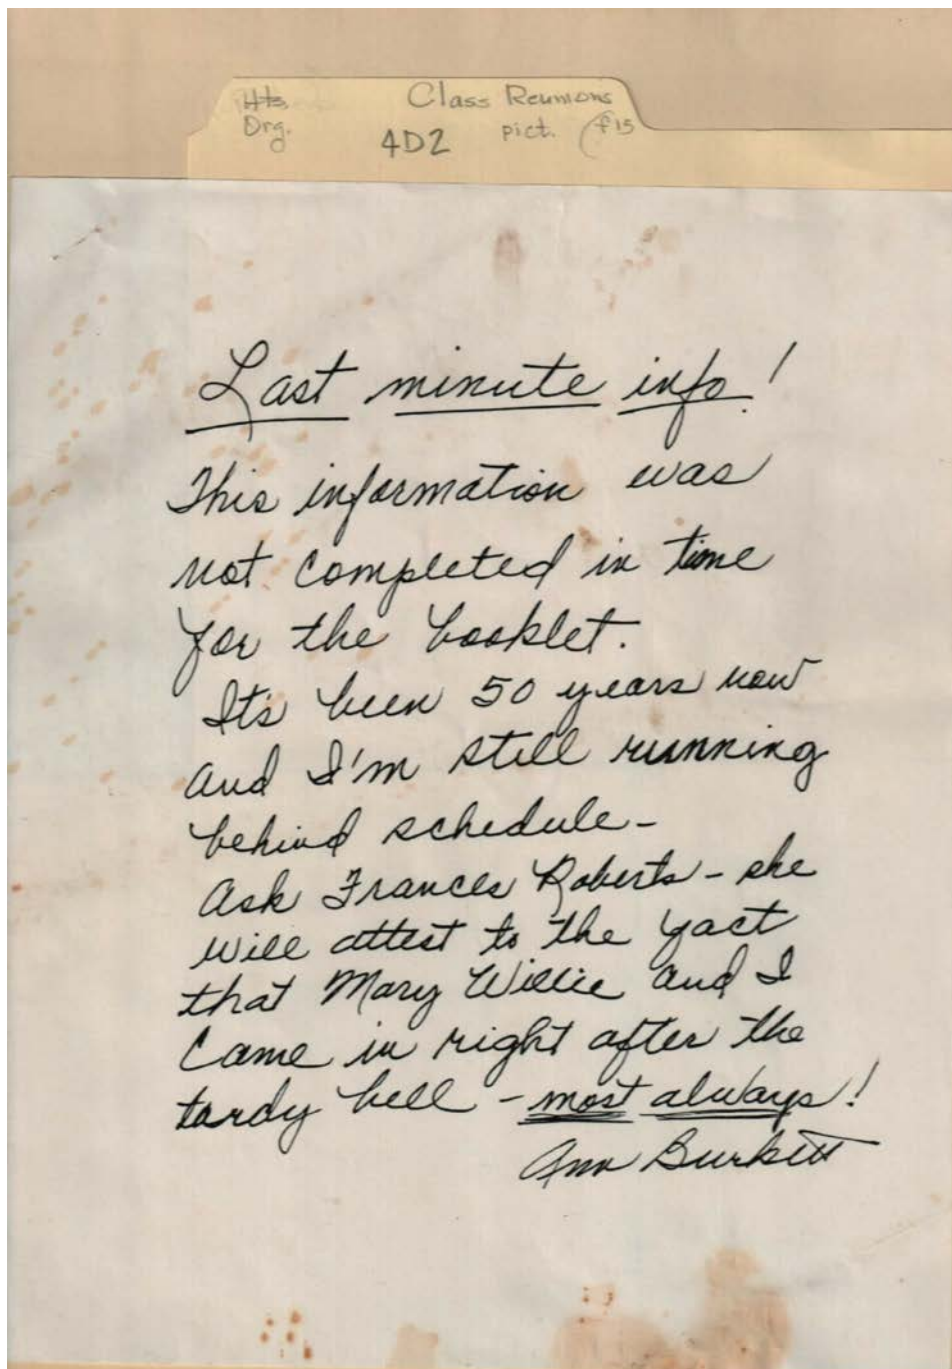 Class Reunions
Org. 4D2 pict. f15
Last minute info!
This information was
not completed in time
for the booklet.
It's been 50 years now
and I'm still running
behind schedule -
Ask Frances Roberts - she
will attest to the fact
that Mary Willie and I
came in right after the
tardy bell - most always!
Ann Burkett